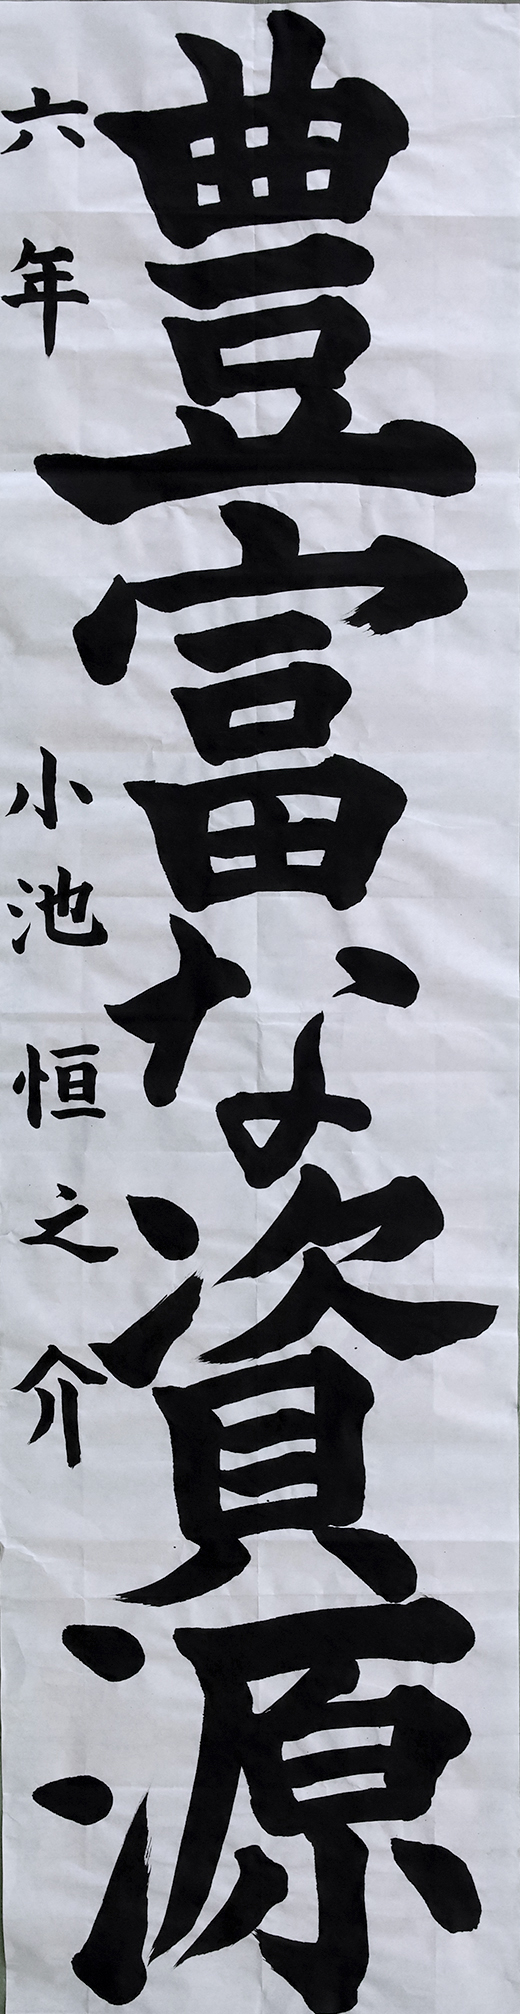 豊富な資源
六年 小池恒之介